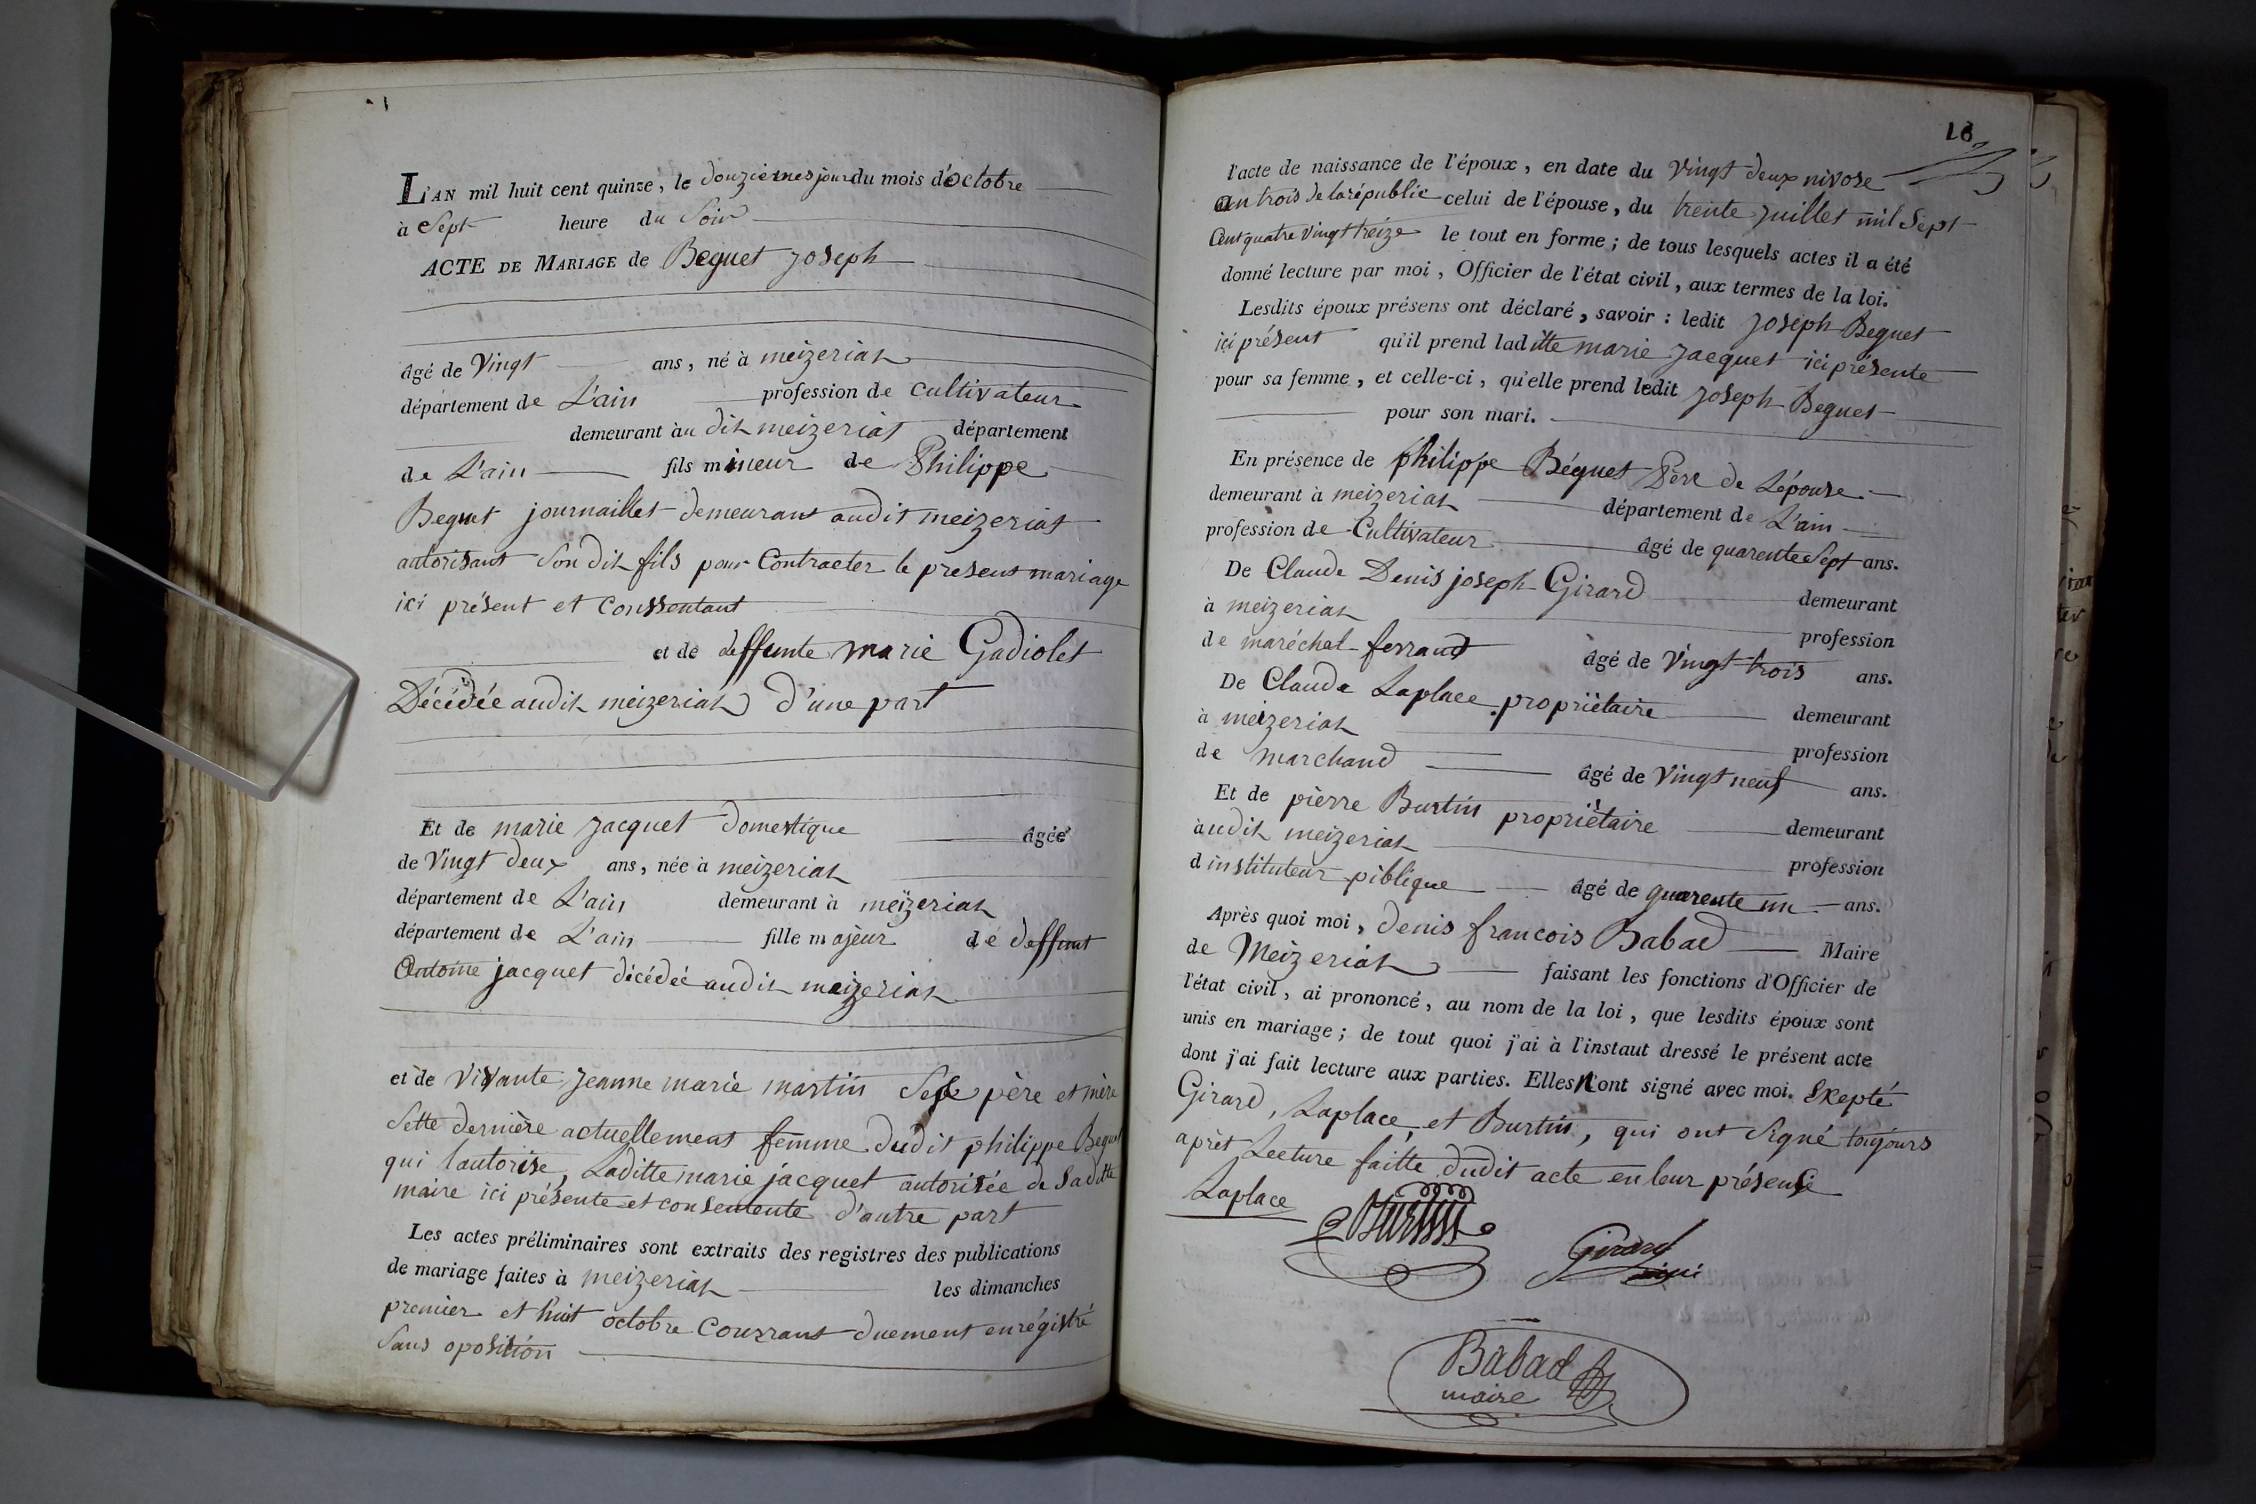 L'AN mil huit cent quinze, le douziemes jour du mois d'octobre
à Sept heure du Soir
ACTE DE MARIAGE de Beguet joseph
âgé de Vingt ans, né à meizeriat
département de L'ain profession de cultivateur
demeurant àu dit meizeriat département
de L'ain fils mineur de Philippe
Beguet journaillet demeurant audit meizeriat
autorisant Son dit fils pour Contracter le present mariage
ici présent et conssentant
et de deffunte marie Gadiolet
Décédée audit meizeriat d'une part
Et de marie jacquet domestique âgée
de Vingt deux ans, née à meizeriat
département de L'ain demeurant à meizeriat
département de L'ain fille majeur de deffunt
Antoine jacquet décédée audit meizeriat
et de vivante jeanne marie martin Ses père et mère
Sette dernière actuellement femme dudit philippe Beguet
qui l'autorise, Laditte marie jacquet autorisée de Saditte
maire ici présente et consentente d'autre part
Les actes préliminaires sont extraits des registres des publications
de mariage faites à meizeriat les dimanches
premier et huit octobre Courrant duement enrégistré
Sans oposition
18
l'acte de naissance de l'époux, en date du Vingt deux nivose
an trois de la républic celui de l'épouse, du trente juillet mil Sept
Cent quatre Vingt treize le tout en forme; de tous lesquels actes il a été
donné lecture par moi, Officier de l'état civil, aux termes de la loi.
Lesdits époux présens ont déclaré, savoir: ledit joseph Beguet
ici présent qu'il prend laditte marie jacquet ici présente
pour sa femme, et celle-ci, qu'elle prend ledit joseph Beguet
pour son mari.
En présence de philippe Béguet Père de L'épouse
demeurant à meizeriat département de L'ain
profession de Cultivateur âgé de quarente Sept ans.
De Claude Denis joseph Girard demeurant
à meizeriat profession
de maréchal ferrant âgé de Vingt trois ans.
De Claude Laplace propriètaire demeurant
à meizeriat profession
de marchand âgé de Vingt neuf ans.
Et de pièrre Burtin propriètaire demeurant
àudit meizeriat profession
d instituteur piblique âgé de quarente un ans.
Après quoi moi, denis francois Babad Maire
de Meizeriat faisant les fonctions d'Officier de
l'état civil, ai prononcé, au nom de la loi, que lesdits époux sont
unis en mariage; de tout quoi j'ai à l'instaut dressé le présent acte
dont j'ai fait lecture aux parties. Elles n'ont signé avec moi. Exepté
Girard, Laplace, et Burtin, qui ont Signé toujours
aprèt Lecture faitte dudit acte en leur présence
Laplace
Burtin
Girard
Babad
maire